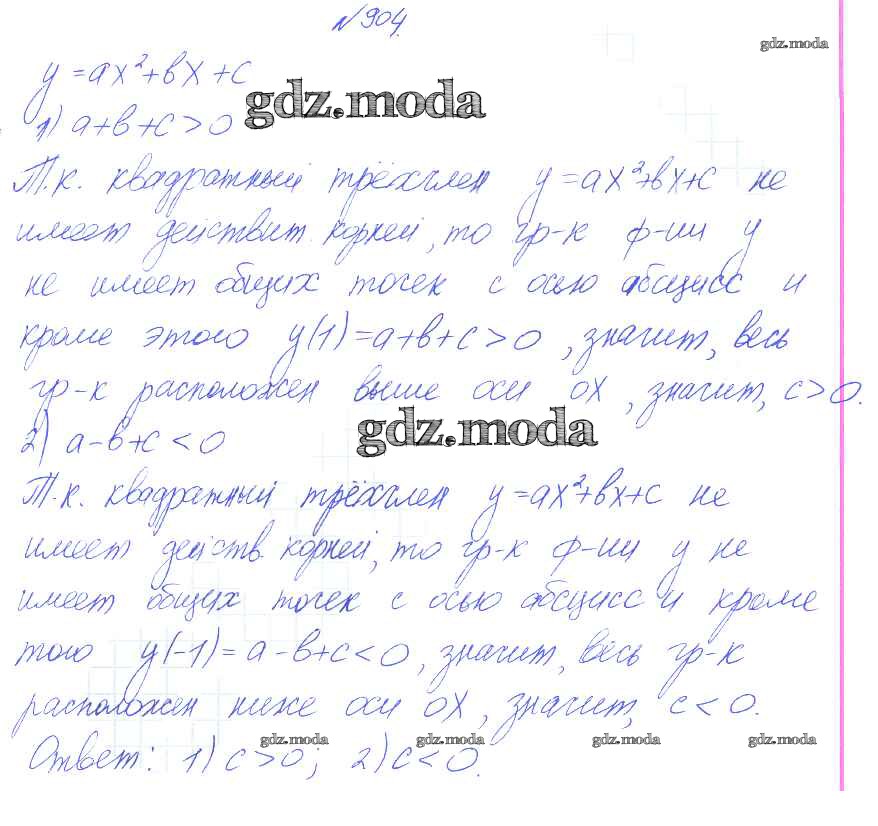 №904.
gdz.moda
y=ax²+bx+c
gdz.moda
1) a+b+c>0
Т.к. квадратный трёхчлен y=ax²+bx+c не
имеет действит. корней, то гр-к ф-ии y
не имеет общих точек с осью абсцисс и
кроме этого y(1)=a+b+c>0, значит, весь
гр-к расположен выше оси OX, значит, c>0.
2) a-b+c<0
gdz.moda
Т.к. квадратный трёхчлен y=ax²+bx+c не
имеет действ. корней, то гр-к ф-ии y не
имеет общих точек с осью абсцисс и кроме
того y(-1)=a-b+c<0, значит, весь гр-к
расположен ниже оси OX, значит, c<0.
gdz.moda gdz.moda gdz.moda gdz.moda
Ответ: 1) c>0; 2) c<0.